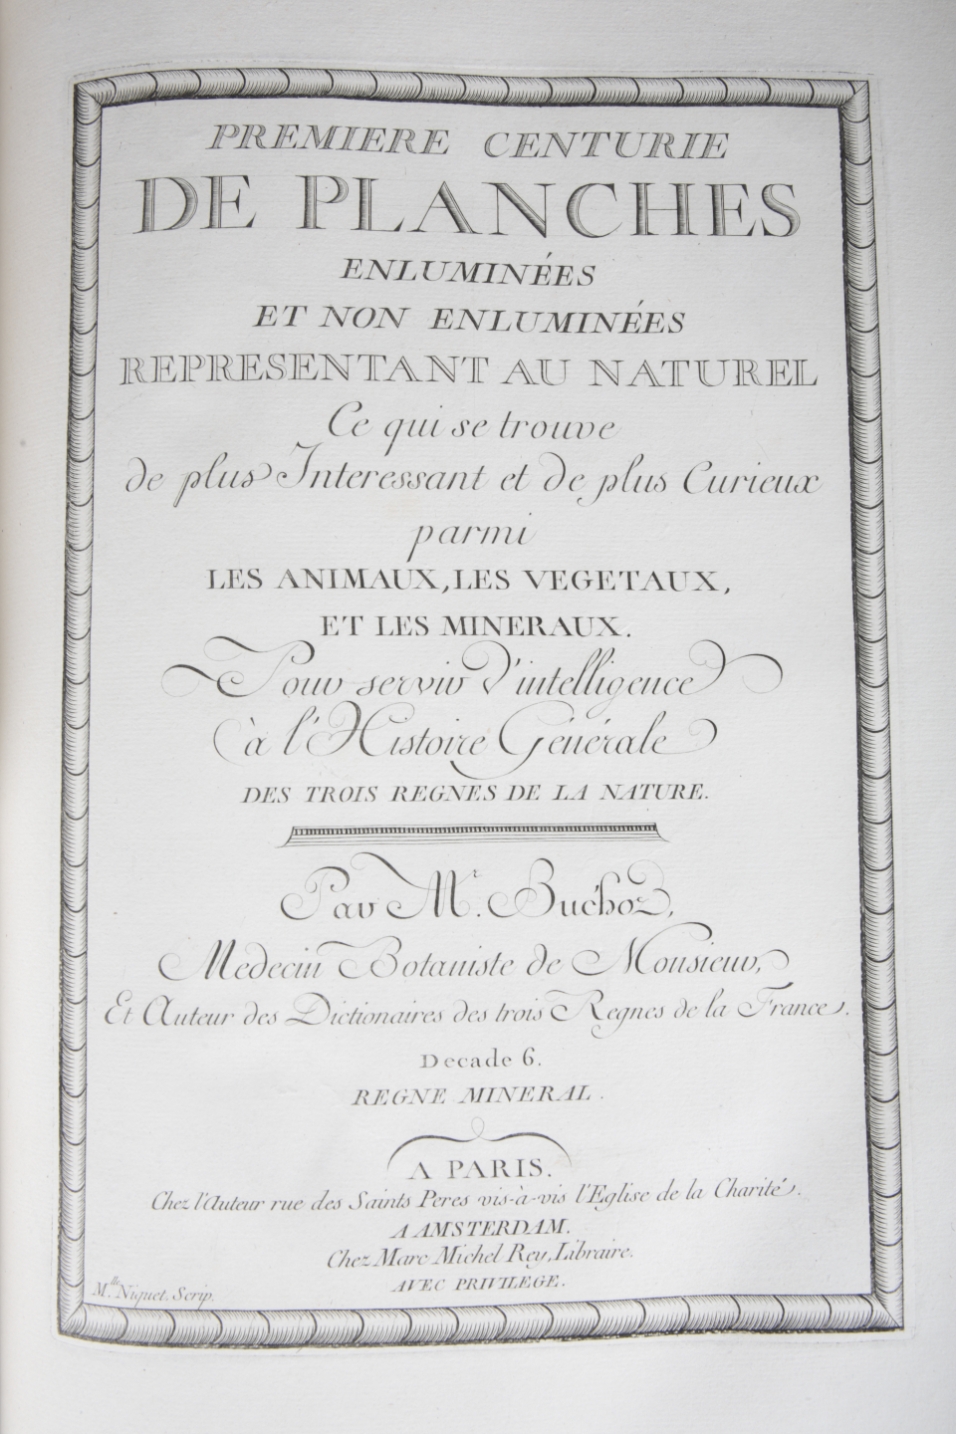 PREMIERE CENTURIE
DE PLANCHES
ENLUMINÉES
ET NON ENLUMINÉES
REPRESENTANT AU NATUREL
Ce qui se trouve
de plus Interessant et de plus Curieux
parmi
LES ANIMAUX, LES VEGETAUX,
ET LES MINERAUX.
Pour servir d'intelligence
à l'Histoire Générale
DES TROIS REGNES DE LA NATURE.
Par Mr. Buchoz,
Medecin Botaniste de Monsieur,
Et Auteur des Dictionaires des trois Regnes de la France.
Decade 6.
REGNE MINERAL.
A PARIS.
Chez l'Auteur rue des Saints Peres vis-à-vis l'Eglise de la Charité.
A AMSTERDAM.
Chez Marc Michel Rey, Libraire.
AVEC PRIVILEGE.
Mlle Niquet. Scrip.